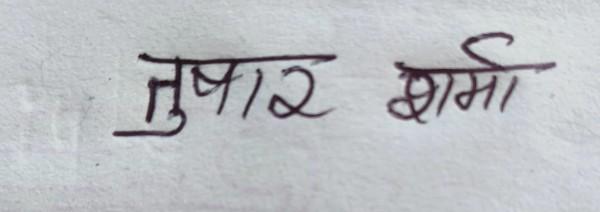 तुषार शर्मा